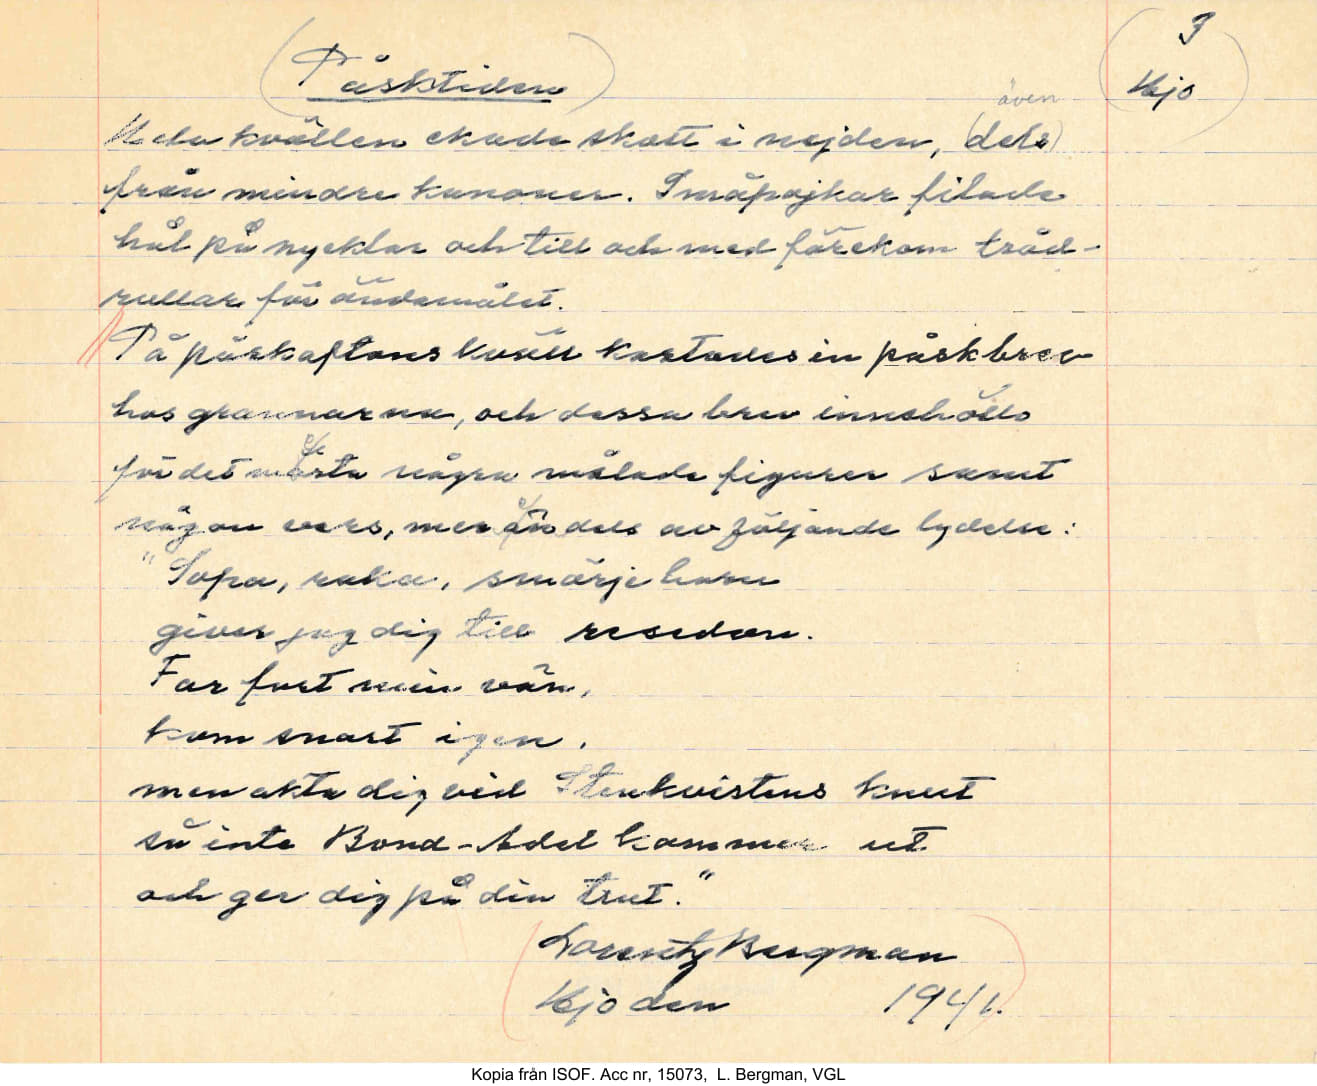 Påsktiden
3
Hjo
även
Hela kvällen ekade skott i nejden, (dels)
från mindre kanoner. Småpojkar filade
hål på nycklar och till och med förekom tråd-
rullar för ändamålet.
På påskaftons kväll kastades in påskbrev
hos grannarna, och dessa brev innehölls
för det mesta några målade figurer samt
någon vers, mer än dels av följande lydelse:
"Sopa, raka, smörjehorn
giver jag dig till resedon.
Far fort min vän,
kom snart igen,
men akta dig vid Stenkvistens knut
så inte Bond-Adel kommer ut
och ger dig på din trut."
Lorentz Bergman
Hjo den 1941.
Kopia från ISOF. Acc nr, 15073, L. Bergman, VGL